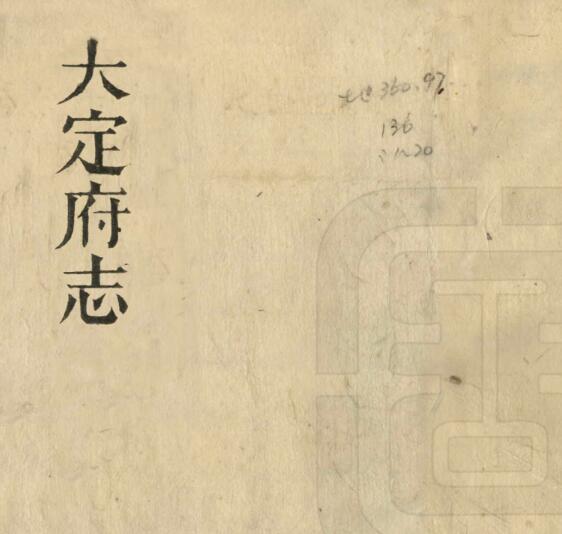 大定府志
地360.97
136
:1~20